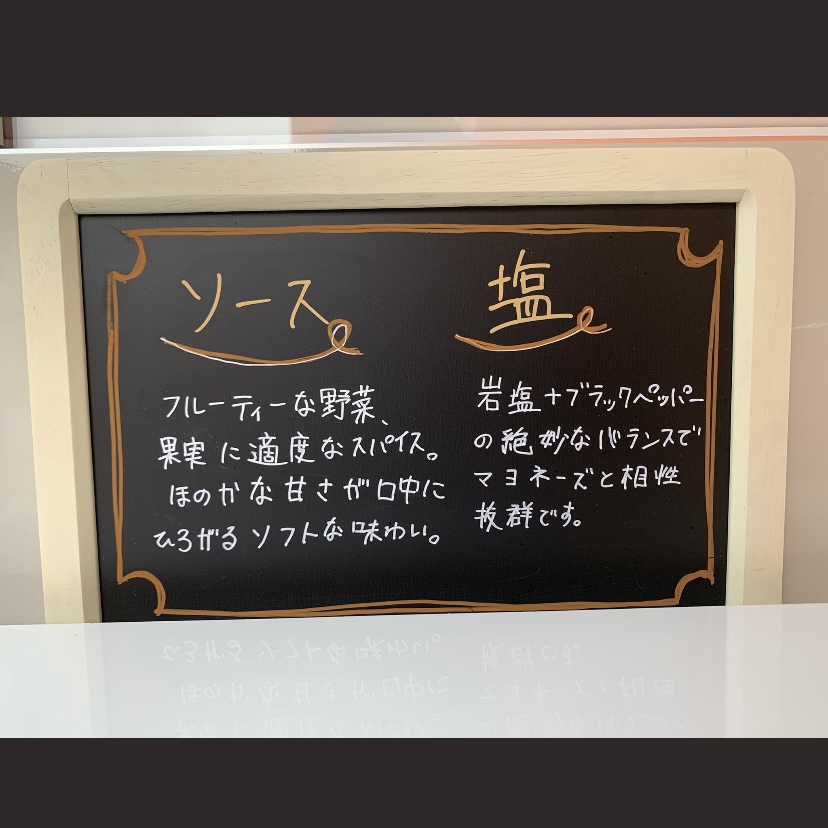 ソース
フルーティーな野菜、
果実に適度なスパイス。
ほのかな甘さが口中に
ひろがるソフトな味わい。
塩
岩塩+ブラックペッパー
の絶妙なバランスで
マヨネーズと相性
抜群です。